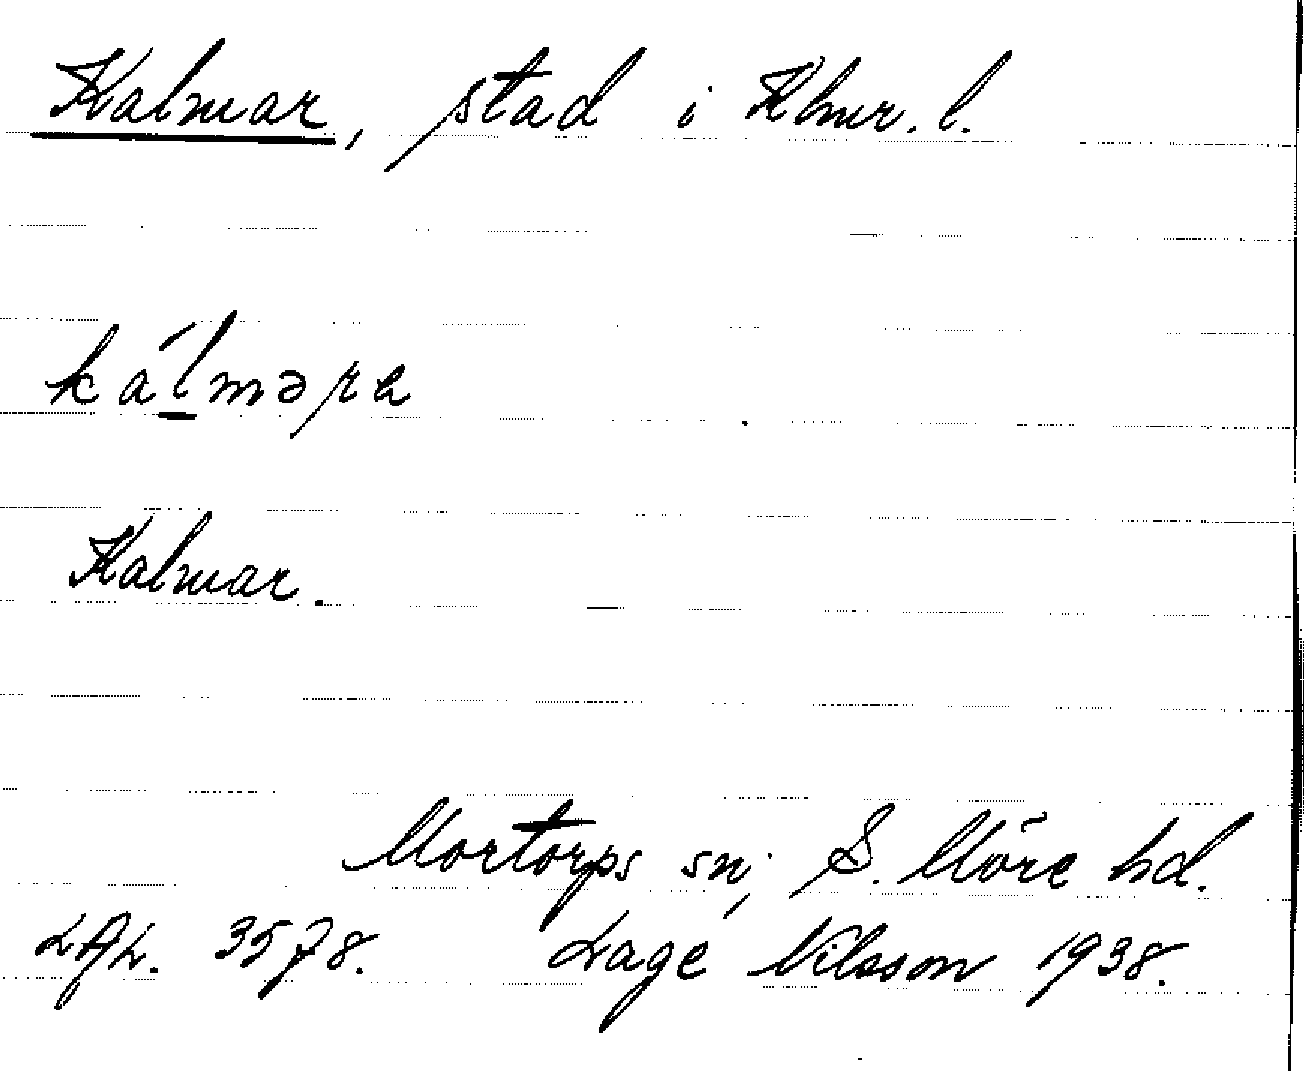 Kalmar, stad i Klmr. l.
kálməra
Kalmar.
Mortorps sn; S. Möre hd.
LAL. 3578. Lage Nilsson 1938.